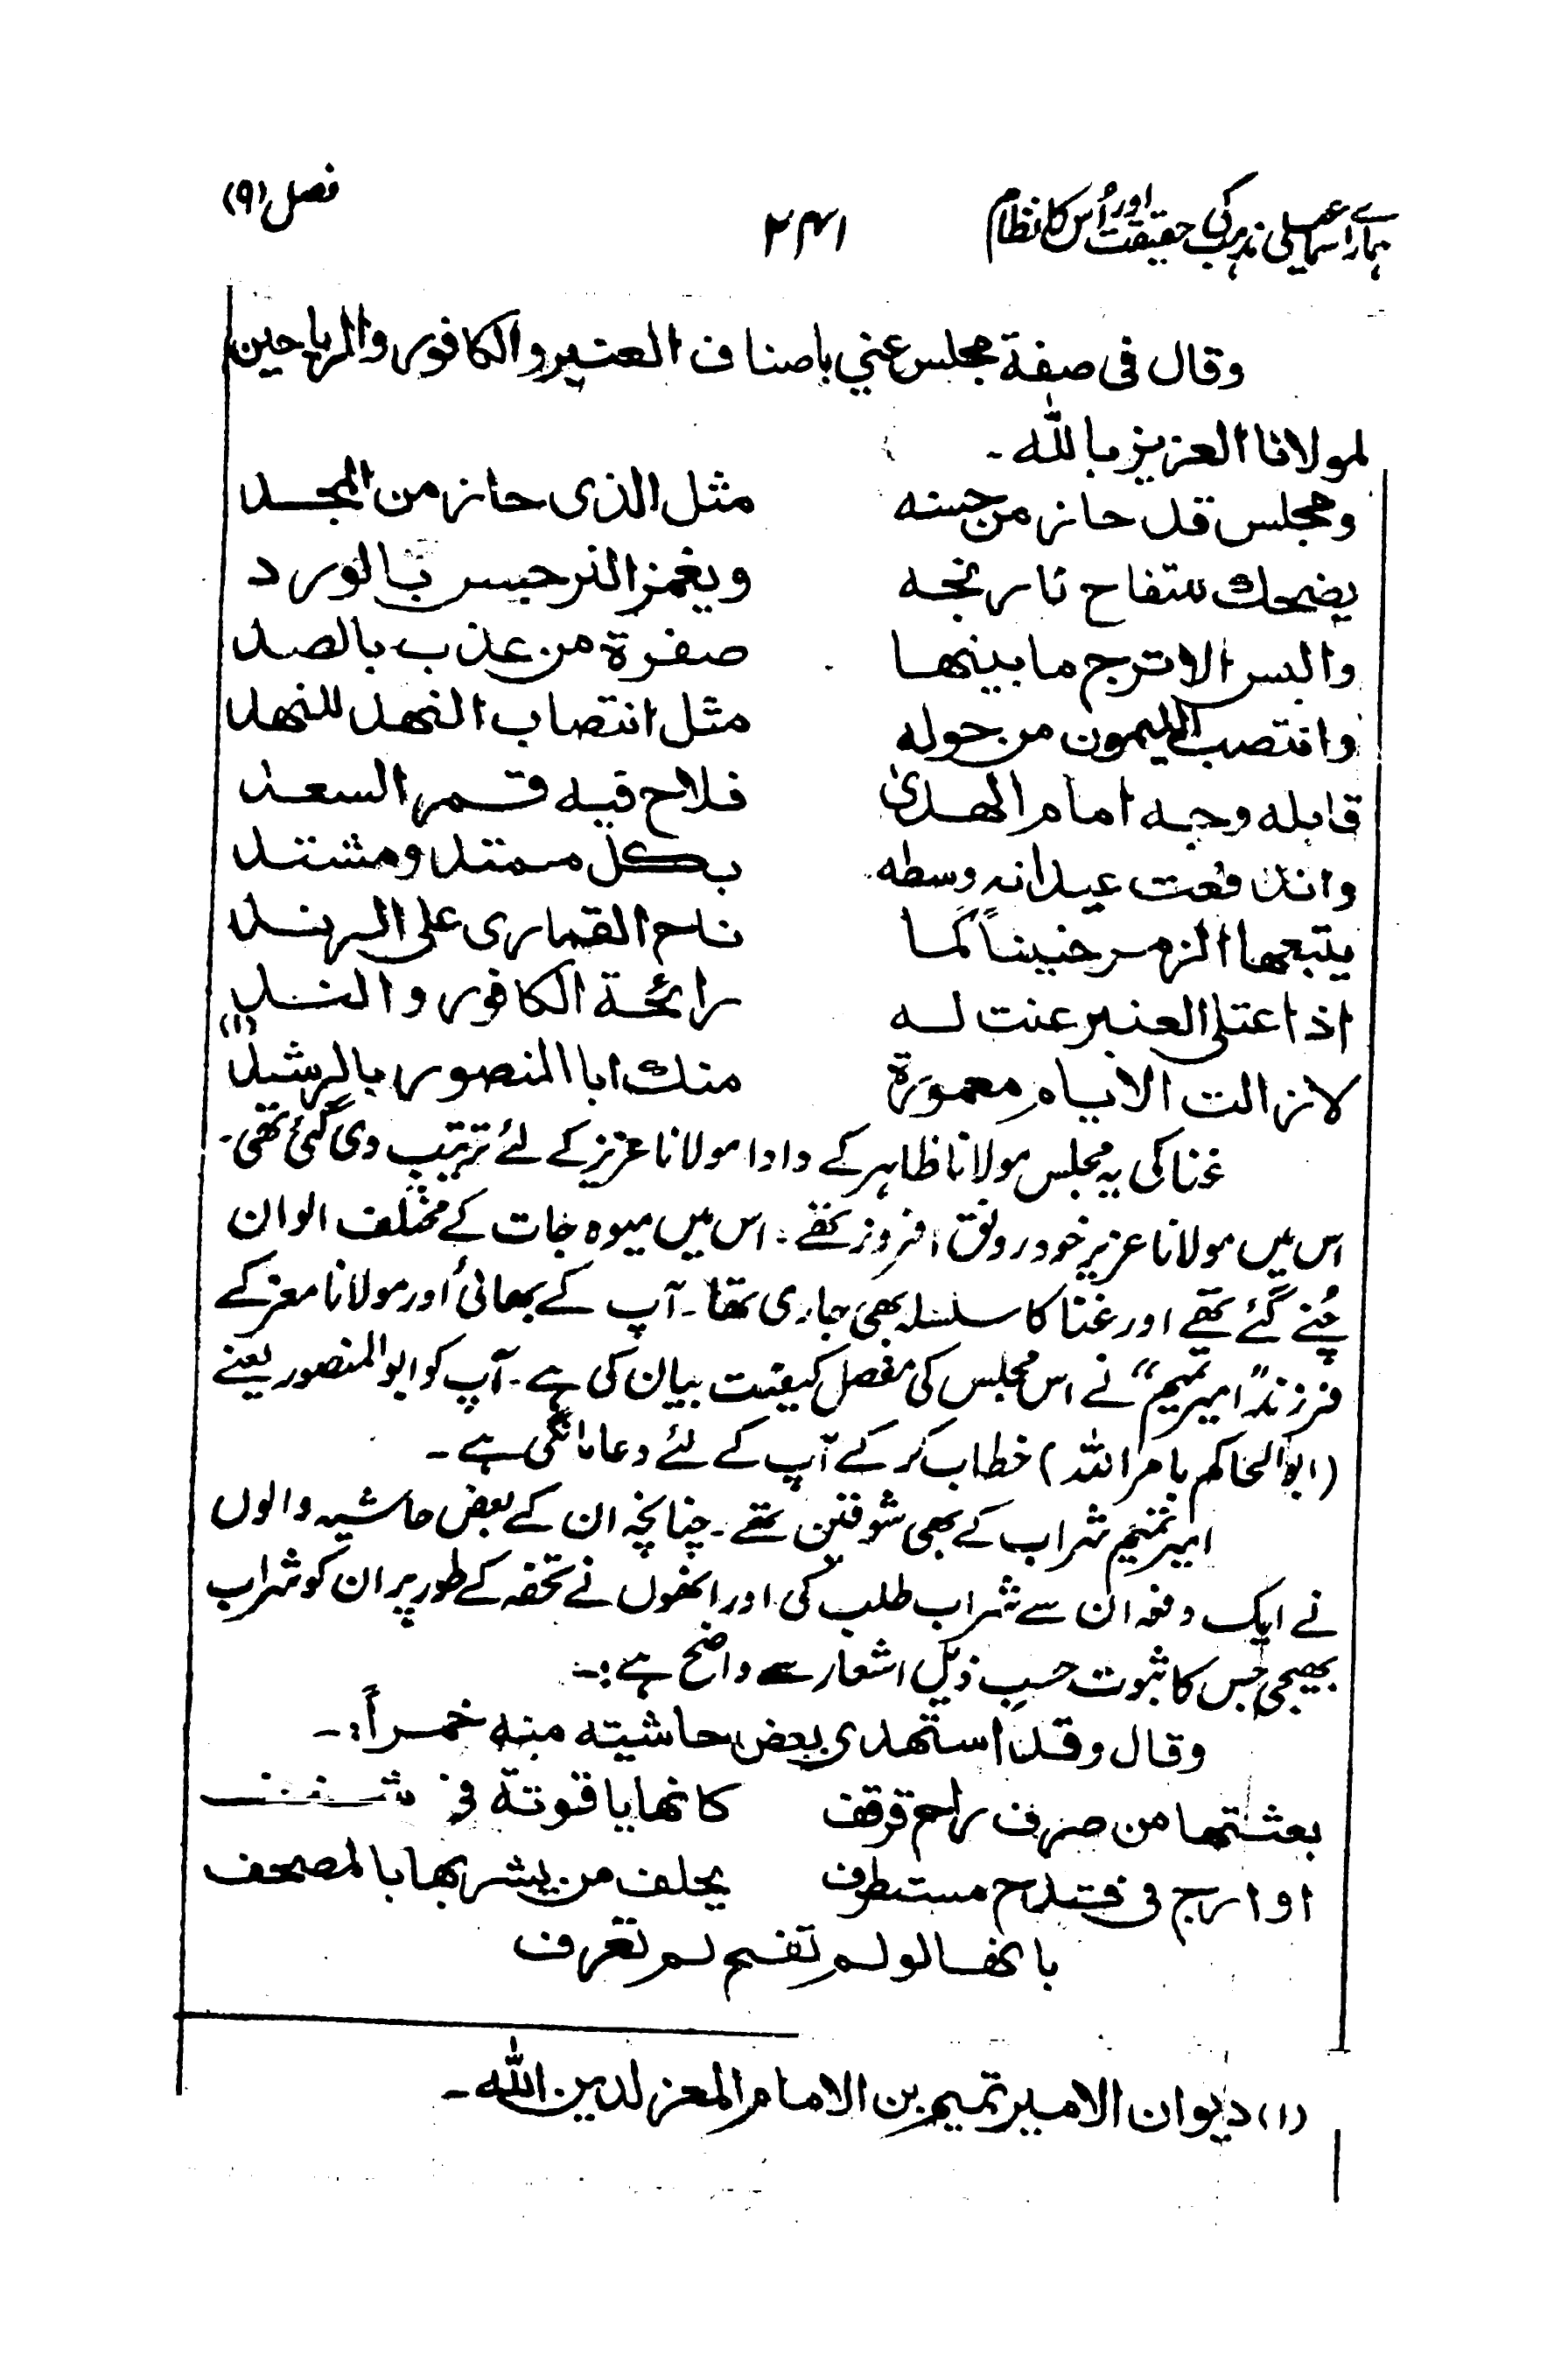 ہمارے اسماعیلی مذہب کی حقیقت اور اُس کا نظام ۲۴۱ فصل (۹)
وقال فی صفة مجلس عنی باصناف العنبر والکافور والریاحین
لمولانا العزیز باللّٰہ ۔
ومجلس قد حاز من حسنه مثل الذی حاز من المجد
یضحك للتفاح نارنجه ویغمز النرجس بالورد
والبس الاترج ما بینھا صفرة من عذب بالصد
وانتصب اللیمون من حوله مثل انتصاب النھد للنھد
قابله وجه امام الھدیٰ فلاح فیه قمر السعد
واندفعت عیدانه وسطه بکل ممتد ومشتد
یتبعھا الزمر حنیناً کما ناح القماری علی الرند
اذا عتلی العنبر عنت له رائحة الکافور والند
لازالت الایام معمورة منك ابا المنصور بالرشد (۱)
غنا کی یہ مجلس مولانا ظاہر کے دادا مولانا عزیز کے لئے ترتیب دی گئی تھی۔
اس میں مولانا عزیز خود رونق افروز تھے ۔ اس میں میوہ جات کے مختلف الوان
چُنے گئے تھے اور غنا کا سلسلہ بھی جاری تھا ۔ آپ کے بھائی اور مولانا معز کے
فرزند “امیر تمیم” نے اس مجلس کی مفصل کیفیت بیان کی ہے ۔ آپ کو ابوالمنصور یعنے
(ابو الحاکم بامر اللہ) خطاب کر کے آپ کے لئے دعا مانگی ہے ۔
امیر تمیم شراب کے بھی شوقین تھے ۔ چنانچہ ان کے بعض حاشیہ والوں
نے ایک دفعہ ان سے شراب طلب کی اور انھوں نے تحفہ کے طور پر ان کو شراب
بھیجی جس کا ثبوت حسبِ ذیل اشعار سے واضح ہے :۔
وقال وقد استھدی بعض حاشیته منه خمراً :۔
بعثتھا من صرف راح قرقف کانھا یاقوتة فی شنف
او ارج فی قدح مستطرف یحلف من یشربھا بالمصحف
بانھا لو لم تفح لم تعرف
(۱) دیوان الامیر تمیم بن الامام المعز لدین اللّٰہ ۔